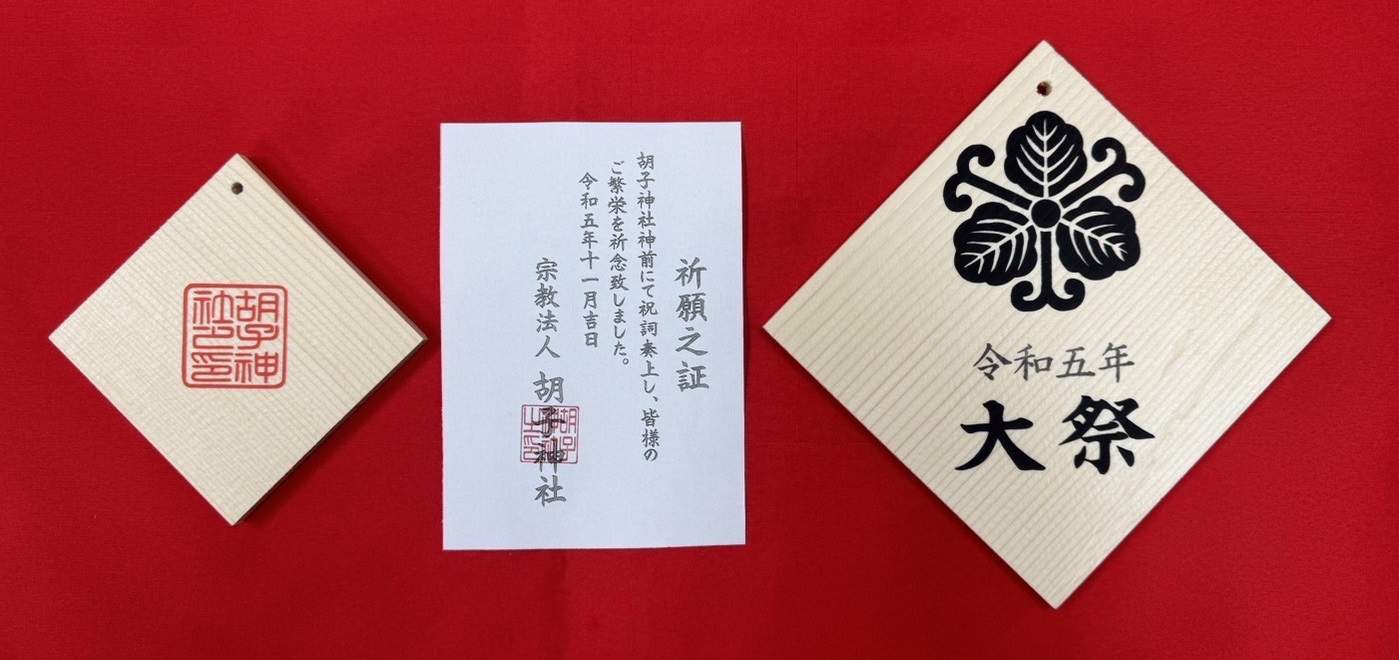 胡子神
社之印
祈願之証
胡子神社神前にて祝詞奏上し、皆様の
ご繁栄を祈念致しました。
令和五年十一月吉日
宗教法人 胡子神社
胡子神
社之印
令和五年
大祭